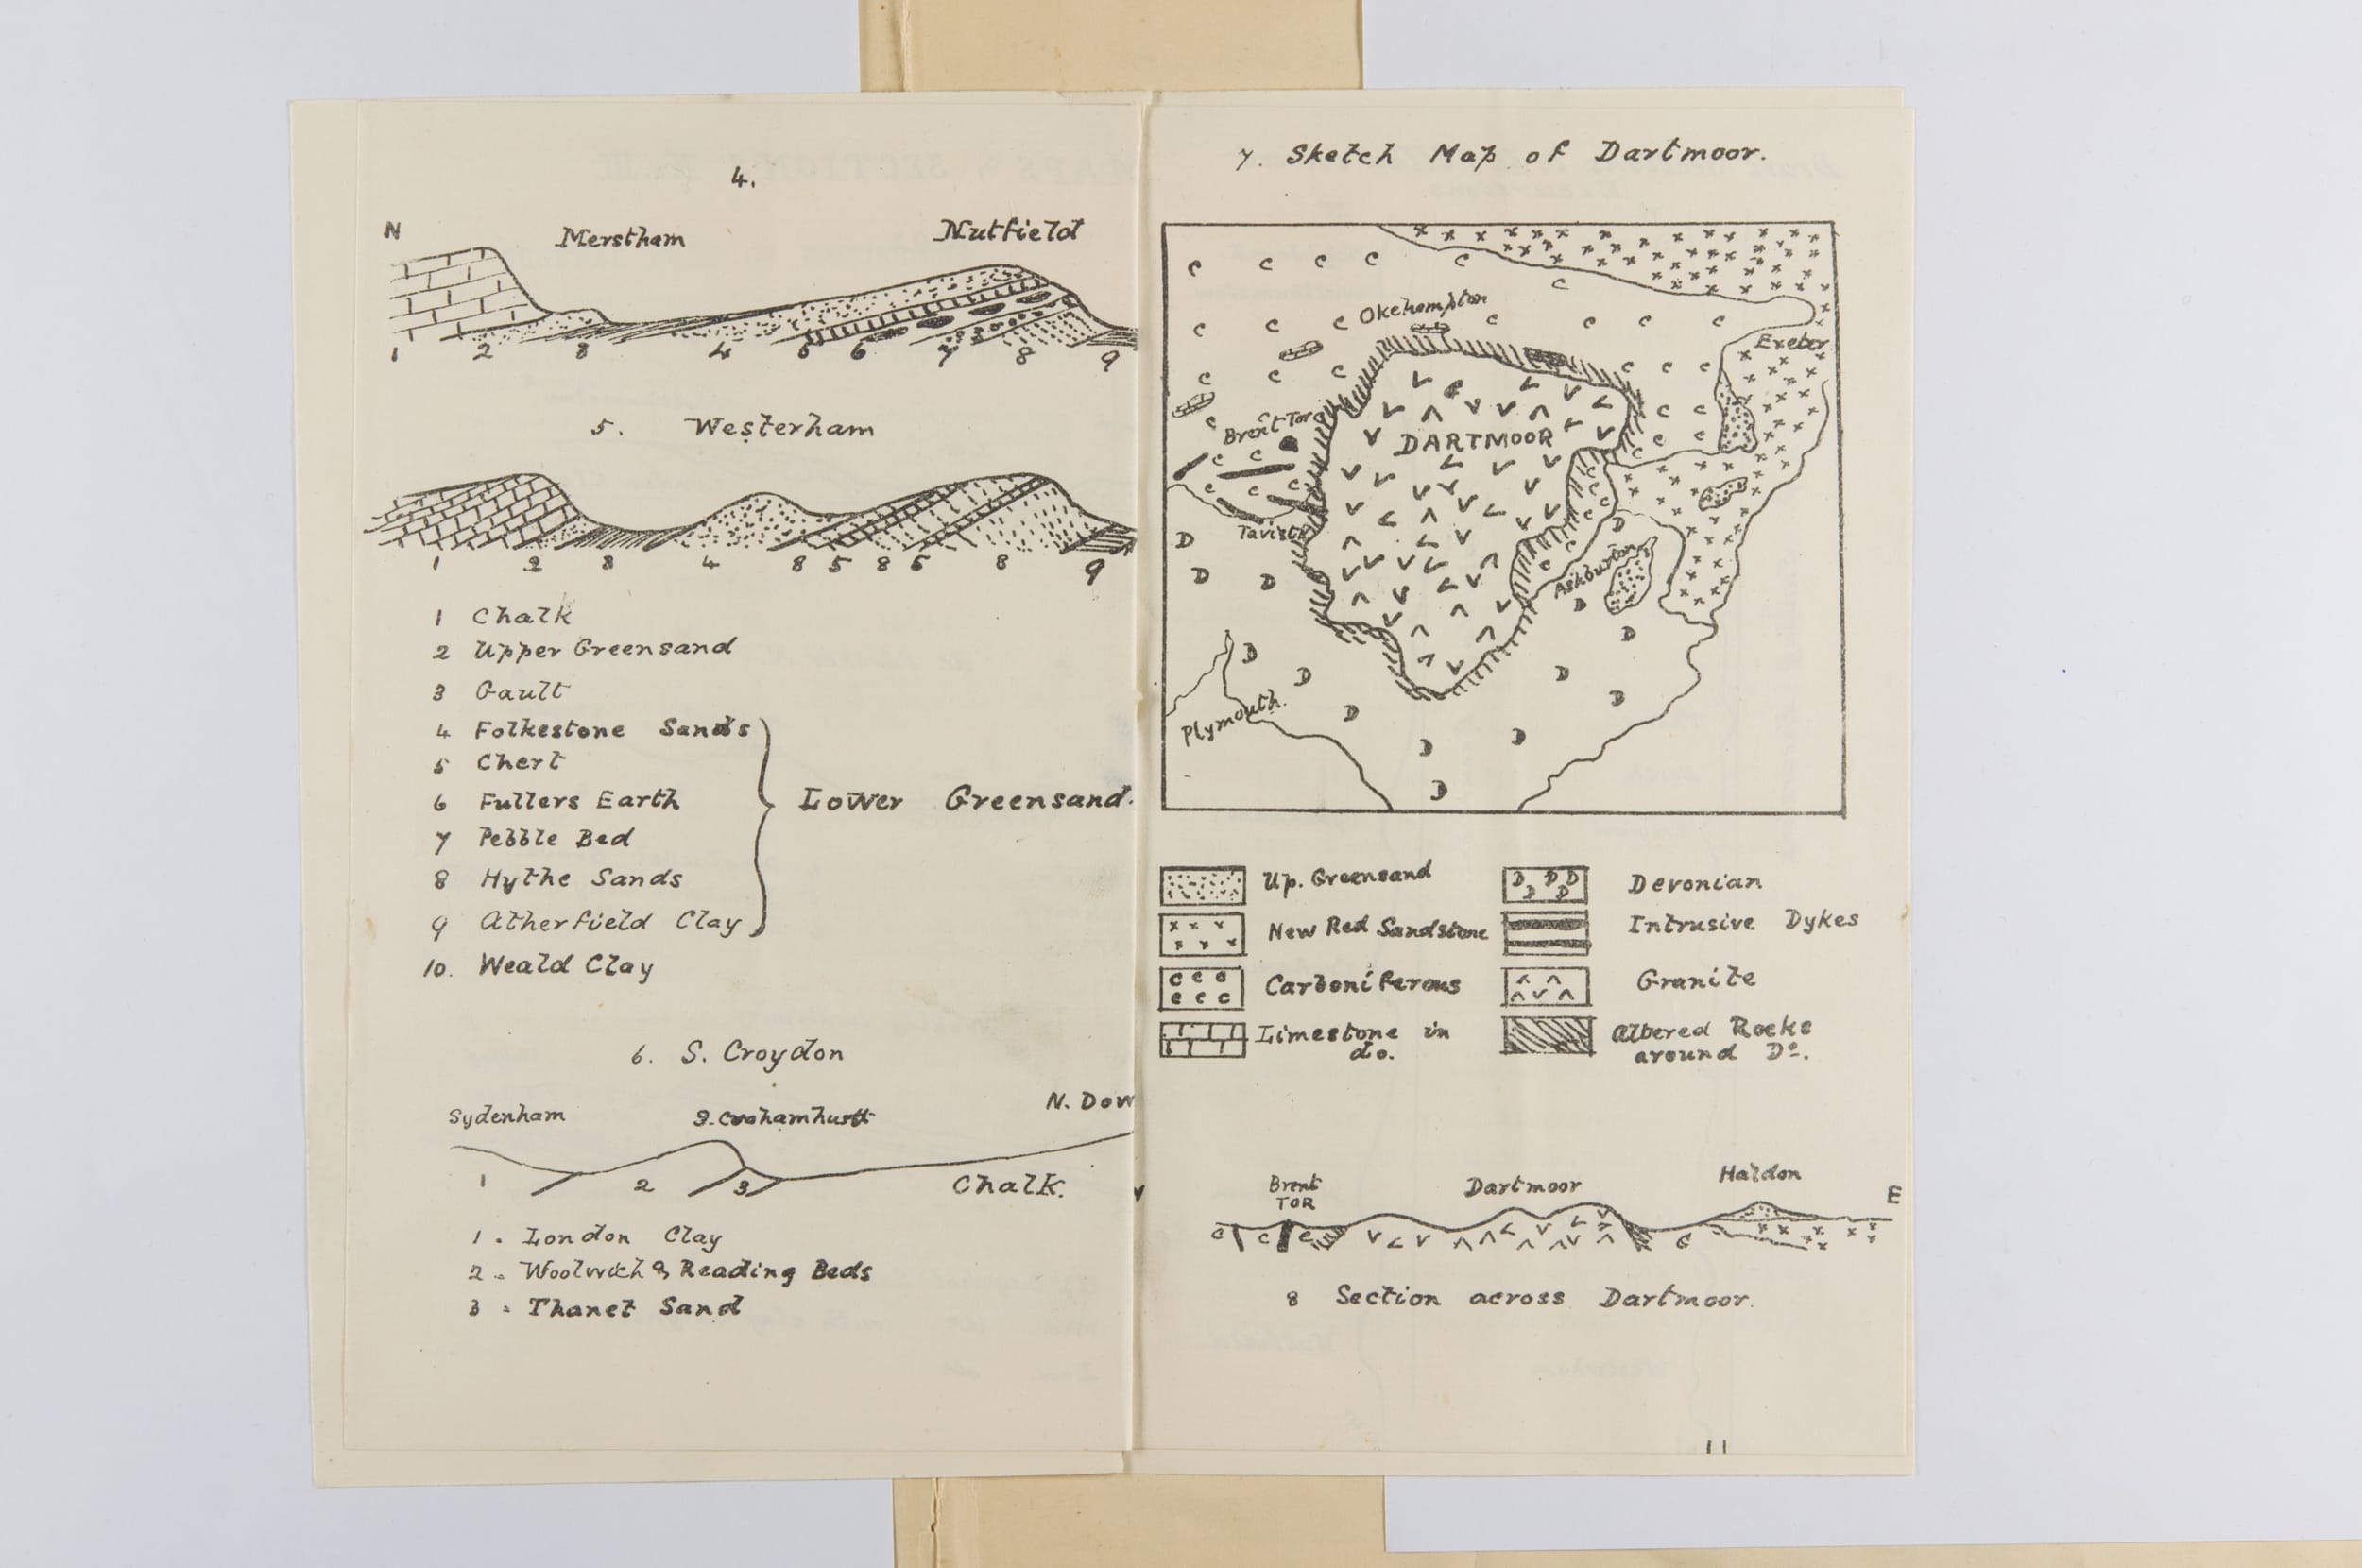 4.
N Merstham Nutfield
1 2 3 4 5 6 7 8 9
5. Westerham
1 2 3 4 8 5 8 5 8 9
1 Chalk
2 Upper Greensand
3 Gault
4 Folkestone Sands
5 Chert
6 Fullers Earth
7 Pebble Bed
8 Hythe Sands
9 Atherfield Clay
Lower Greensand.
10. Weald Clay
6. S. Croydon
Sydenham N. Dow
1 2 3 Chalk.
1. London Clay
2. Woolwich & Reading Beds
3 = Thanet Sand
7. Sketch Map of Dartmoor.
Okehampton
Exeter
Brent Tor
DARTMOOR
Tavistk
Ashburton
Plymouth.
Up. Greensand
New Red Sandstone
Carboniferous
Limestone in
do.
Devonian
Intrusive Dykes
Granite
Altered Rocks
around Do.
Brent
TOR
Dartmoor
Haldon
E
8 Section across Dartmoor.
11